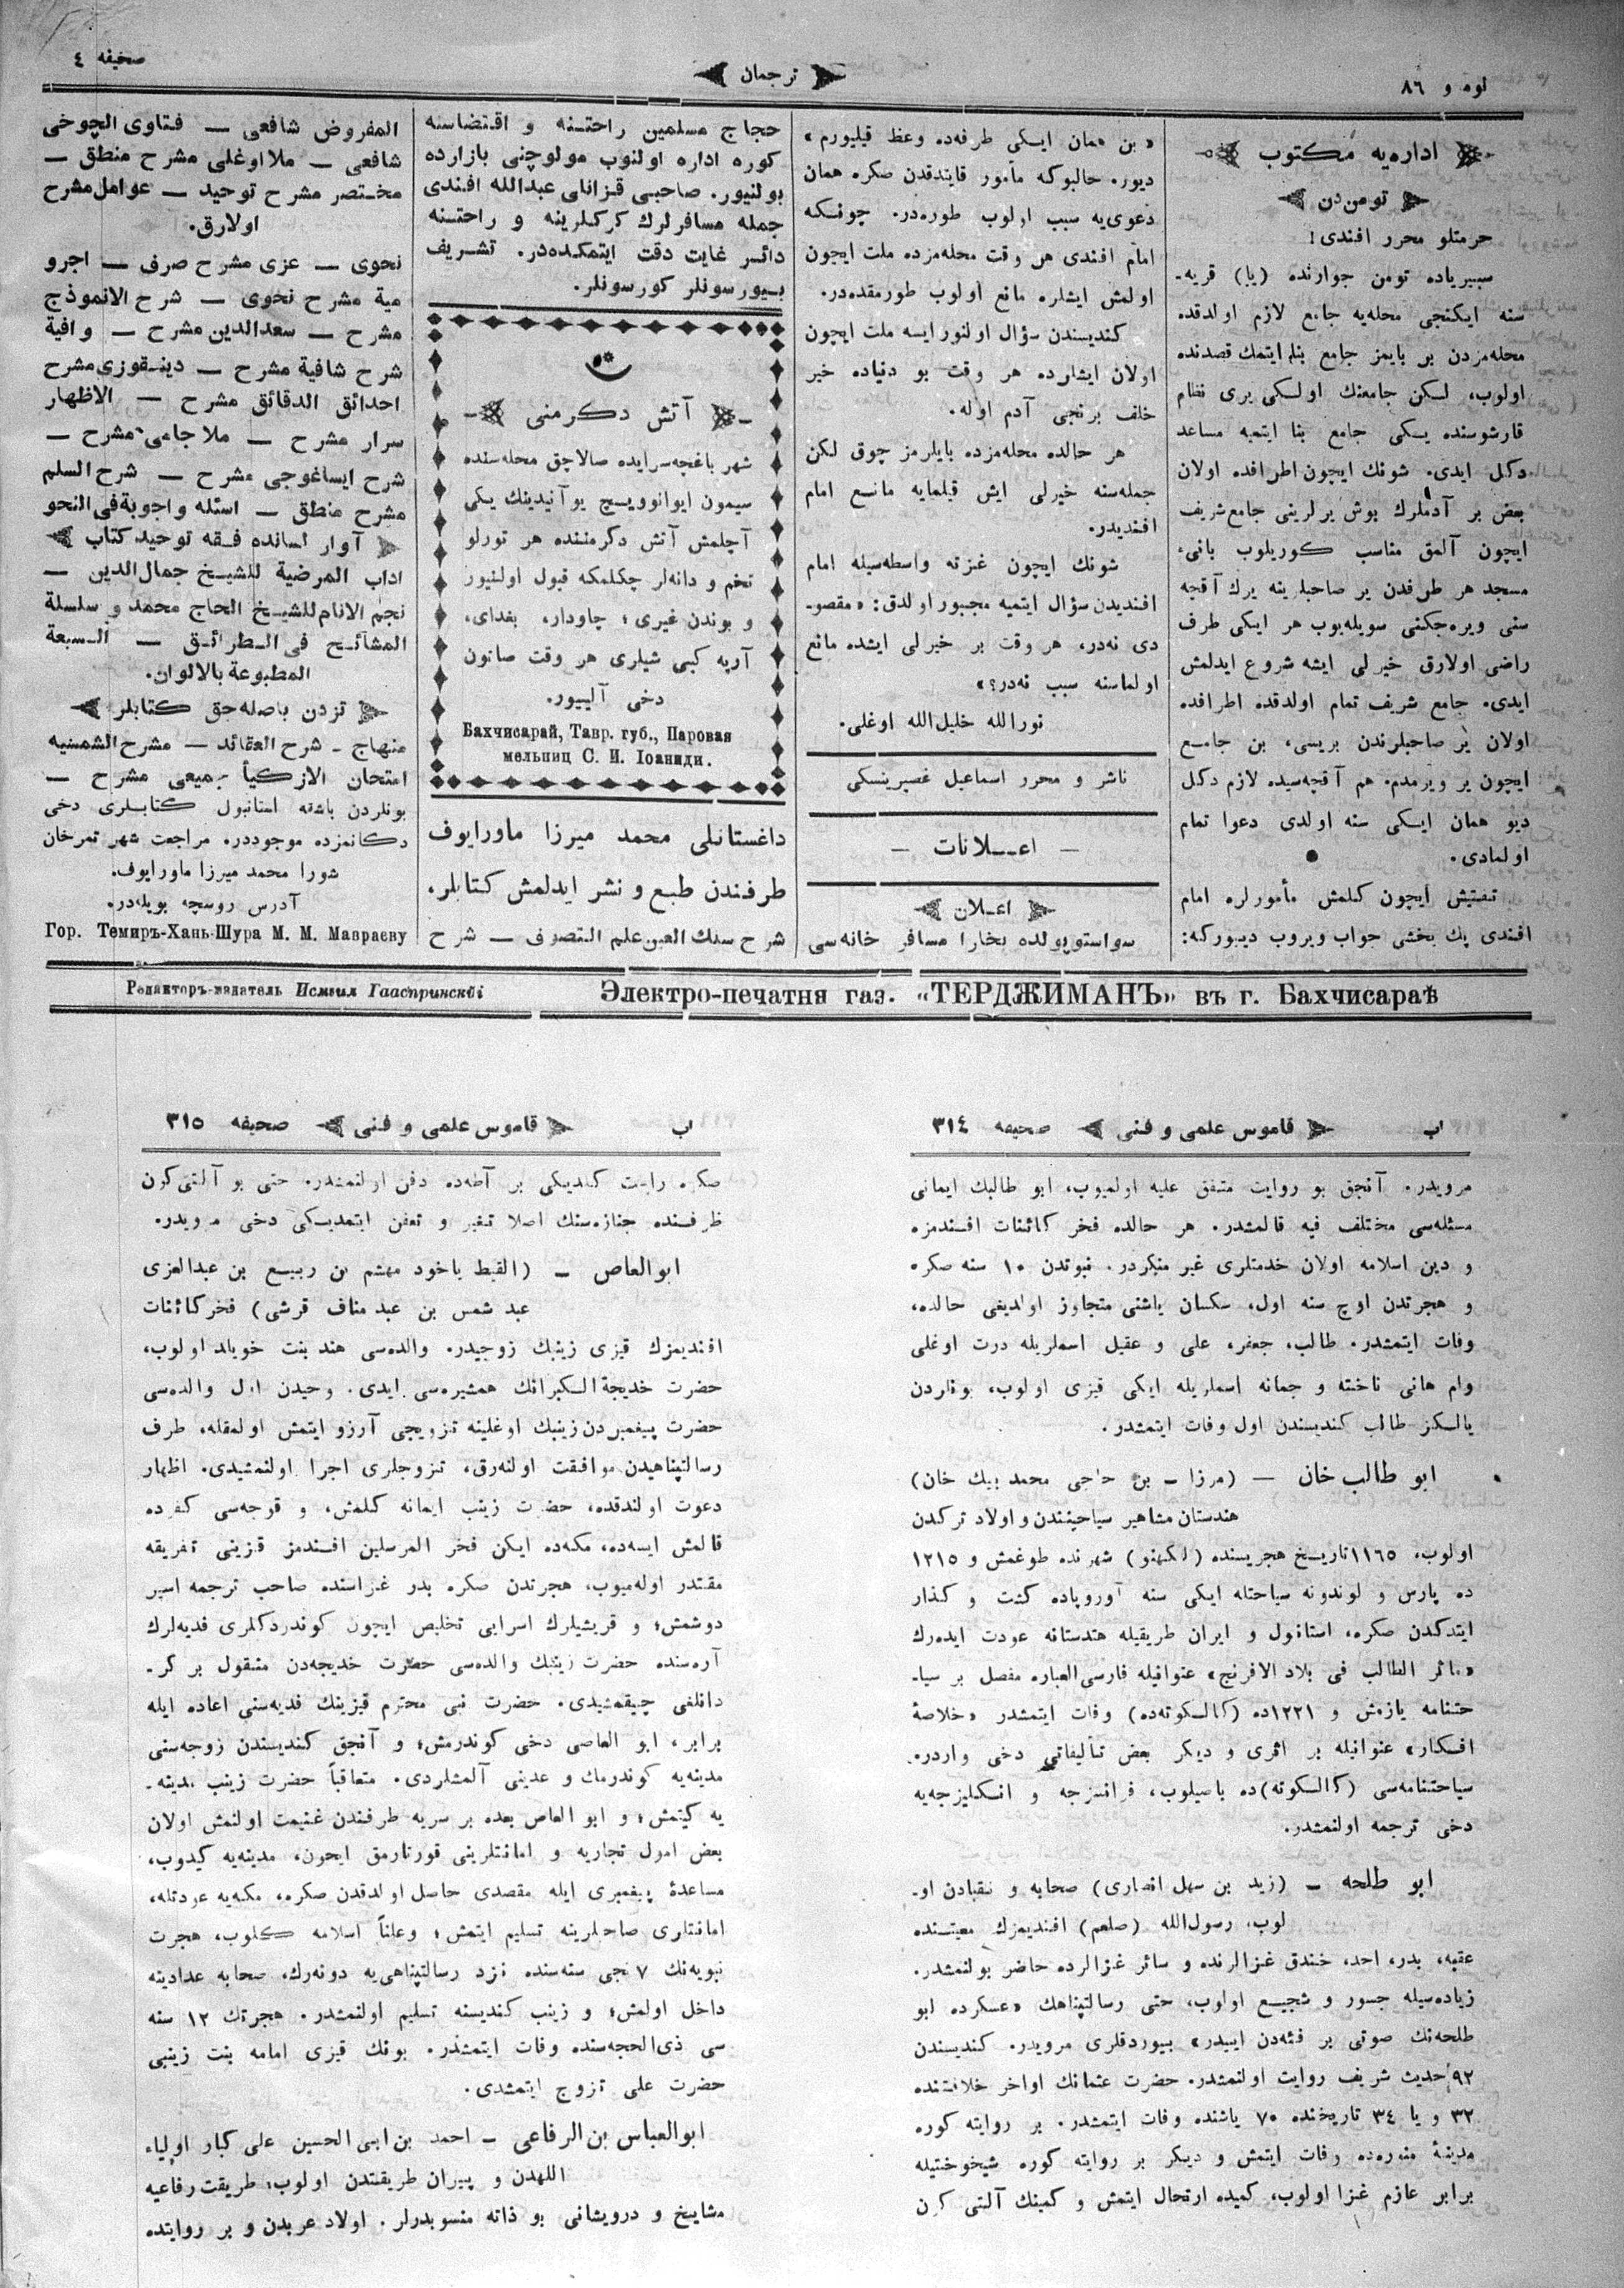 نومرو ٨٦
ترجمان
صحیفه ٤
ادارەیه مكتوب
تومن‌دن
حرمتلو محرر افندی!
سیبیریاده تومن جوارنده (یا) قریه‌ـ
سنه ایكنجی محله‌یه جامع لازم اولدقده
محله‌مزدن بر بایمز جامع بنا ایتمك قصدنده
اولوب، لكن جامعنك اولكی یری نظام
قارشوسنده یسكی جامع بنا ایتمیه مساعد
دكل ایدی. شونك ایچون اطرافده اولان
بعض بر آدملرك بوش یرلرینی جامع شریف
ایچون آلمق مناسب كوریلوب بانیء
مسجد هر طرفدن یر صاحبلرینه یرك آقچه
سنی ویره‌جكنی سویله‌یوب هر ایكی طرف
راضی اولارق خیرلی ایشه شروع ایدلمش
ایدی. جامع شریف تمام اولدقده اطرافده
اولان یر صاحبلرندن بریسی، بن جامع
ایچون یر ویرمدم. هم آقچه‌سیده لازم دكل
دیو همان ایكی سنه اولدی دعوا تمام
اولمادی.
تفتیش ایچون كلمش مأمورلره امام
افندی پك یخشی جواب ویروب دیوركه:
«بن همان ایكی طرفه‌ده وعظ قیلیورم»
دیور. حالبوكه مأمور قایتدقدن صكره همان
دعوی‌یه سبب اولوب طوره‌در. چونكه
امام افندی هر وقت محله‌مزده ملت ایچون
اولمش ایشلره مانع اولوب طورمقده‌در.
كندیسندن سؤال اولنور ایسه ملت ایچون
اولان ایشلرده هر وقت بو دنیاده خیر
خلف برنجی آدم اوله.
هر حالده محله‌مزده بایلرمز چوق لكن
جمله‌سنه خیرلی ایش قیلمایه مانع امام
افندیدر.
شونك ایچون غزته واسطه‌سیله امام
افندیدن سؤال ایتمیه مجبور اولدق: «مقصوـ
دی نه‌در، هر وقت بر خیرلی ایشده مانع
اولماسنه سبب نه‌در؟»
نورالله خلیل‌الله اوغلی.
ناشر و محرر اسماعیل غصپرینسكی
— اعــلانات —
اعلان
سواستوپولده بخارا مسافر خانه‌سی
حجاج مسلمین راحتنه و اقتضاسنه
كوره اداره اولنوب مولوچنی بازارده
بولنیور. صاحبی قزانلی عبدالله افندی
جمله مسافرلرك كركلرینه و راحتنه
دائر غایت دقت ایتمكده‌در. تشریف
بیورسونلر كورسونلر.
آتش دكرمنی
شهر باغچه‌سرایده صالاچق محله‌سنده
سیمون ایوانوویچ یوآنیدینك یكی
آچلمش آتش دكرمننده هر تورلو
تخم و دانه‌لر چكلمكه قبول اولنیور
و بوندن غیری؛ چاودار، بغدای،
آرپه كبی شیلری هر وقت صاتون
دخی آلییور.
Бахчисарай, Тавр. губ., Паровая
мельниц С. И. Іоаниди.
داغستانلی محمد میرزا ماورایوف
طرفندن طبع و نشر ایدلمش كتابلر.
شرح سلك العین علم التصوف — شرح
المفروض شافعی — فتاوی الچوخی
شافعی — ملا اوغلی مشرح منطق —
مختصر مشرح توحید — عوامل مشرح
اولارق.
نحوی — عزی مشرح صرف — اجرو
میة مشرح نحوی — شرح الانموذج
مشرح — سعدالدین مشرح — وافیة
شرح شافیة مشرح — دینقوزی مشرح
احدائق الدقائق مشرح — الاظهار
سرار مشرح — ملا جامی مشرح —
شرح ایساغوجی مشرح — شرح السلم
مشرح منطق — اسئله و اجوبة فی النحو
آوار لسانده فقه توحید كتاب
اداب المرضیة للشیخ جمال‌الدین —
نجم الانام للشیخ الحاج محمد و سلسلة
المشائخ فی الطرائق — السبعة
المطبوعة بالالوان.
تزدن باصله‌جق كتابلر
منهاج — شرح العقائد — مشرح الشمسیه
امتحان الازكیأ — مشرح —
بونلردن باشقه استانبول كتابلری دخی
دكانمزده موجوددر. مراجعت شهر تمرخان
شورا محمد میرزا ماورایوف.
آدرس روسچه بویله‌در.
Гор. Темиръ-Ханъ-Шура М. М. Мавраеву
Редакторъ-издатель Исмаил Гааспринскій
Электро-печатня газ. «ТЕРДЖИМАНЪ» въ г. Бахчисараѣ
اب
قاموس علمی و فنی
صحیفه ٣١٤
مرویدر. آنجق بو روایت متفق علیه اولمیوب، ابو طالبك ایمانی
مسئله‌سی مختلف فیه قالمشدر. هر حالده فخر كائنات افندمزه
و دین اسلامه اولان خدمتلری غیر منكردر. نبوتدن ١٠ سنه صكره
و هجرتدن اوچ سنه اول، سكسان یاشنی متجاوز اولدیغی حالده،
وفات ایتمشدر. طالب، جعفر، علی و عقیل اسملریله درت اوغلی
وام هانی ناخته و جمانه اسملریله ایكی قیزی اولوب، بونلردن
یالكز طالب كندیسندن اول وفات ایتمشدر.
ابو طالب خان — (مرزا - بن حاجی محمد بیك خان)
هندستان مشاهیر سیاحیندن و اولاد تركدن
اولوب، ١١٦٥ تاریخ هجریسنده (لكهنو) شهرنده طوغمش و ١٢١٥
ده پارس و لوندونه سیاحتله ایكی سنه آوروپاده كشت و كذار
ایتدكدن صكره، استانبول و ایران طریقیله هندستانه عودت ایدەرك
«مآثر الطالب فی بلاد الافرنج» عنوانیله فارسی العباره مفصل بر سیاـ
حتنامه یازمش و ١٢٢١ده (كالكوته‌ده) وفات ایتمشدر «خلاصهٔ
افكار» عنوانیله بر اثری و دیكر بعض تألیفاتی دخی واردر.
سیاحتنامه‌سی (كالكوته)ده باصیلوب، فرانسزجه و انكلیزجه‌یه
دخی ترجمه اولنمشدر.
ابو طلحه — (زید بن سهل انصاری) صحابه و نقبادن اوـ
لوب، رسول‌الله (صلعم) افندیمزك معیتنده
عقبه، بدر، احد، خندق غزالرنده و سائر غزالرده حاضر بولنمشدر.
زیاده‌سیله جسور و شجیع اولوب، حتی رسالتپناهك «عسكرده ابو
طلحه‌نك صوتی بر فئه‌دن اییدر» بیوردقلری مرویدر. كندیسندن
٩٢ حدیث شریف روایت اولنمشدر. حضرت عثمانك اواخر خلافتنده
٣٢ و یا ٣٤ تاریخنده ٧٠ یاشنده وفات ایتمشدر. بر روایته كوره
مدینهٔ منوره‌ده وفات ایتمش و دیكر بر روایته كوره شیخوختیله
برابر عازم غزا اولوب، كمیده ارتحال ایتمش و كمینك آلتی كون
اب
قاموس علمی و فنی
صحیفه ٣١٥
صكره راست كلدیكی بر آطه‌ده دفن اولنمشدر. حتی بو آلتی كون
ظرفنده جنازه‌سنك اصلا تغیر و تعفن ایتمدیكی دخی مرویدر.
ابو العاص — (القیط یاخود مهشم بن ربیع بن عبدالعزی
عبد شمس بن عبد مناف قرشی) فخر كائنات
افندیمزك قیزی زینبك زوجیدر. والده‌سی هند بنت خویلد اولوب،
حضرت خدیجة الكبرانك همشیره‌سی ایدی. وحیدن اول والده‌سی
حضرت پیغمبردن زینبك اوغلینه تزویجی آرزو ایتمش اولمقله، طرف
رسالتپناهیدن موافقت اولنەرق، تزوجلری اجرا اولنمشیدی. اظهار
دعوت اولندقده، حضرت زینب ایمانه كلمش، و قوجه‌سی كفرده
قالمش ایسه‌ده، مكه‌ده ایكن فخر المرسلین افندمز قزینی تفریقه
مقتدر اوله‌میوب، هجرتدن صكره بدر غزاسنده صاحب ترجمه اسیر
دوشمش؛ و قریشیلرك اسرایی تخلیص ایچون كوندردكلری فدیه‌لرك
آره‌سنده حضرت زینبك والده‌سی حضرت خدیجه‌دن منقول بر كرـ
دانلغی چیقمشیدی. حضرت نبی محترم قیزینك فدیه‌سنی اعاده ایله
برابر، ابو العاصی دخی كوندرمش؛ و آنجق كندیسندن زوجه‌سنی
مدینه‌یه كوندرمك و عدینی آلمشلردی. متعاقباً حضرت زینب مدینه‌ـ
یه كیتمش؛ و ابو العاص بعده بر سریه طرفندن غنیمت اولنمش اولان
بعض اموال تجاریه و امانتلرینی قورتارمق ایچون، مدینه‌یه كیدوب،
مساعدهٔ پیغمبری ایله مقصدی حاصل اولدقدن صكره، مكه‌یه عودتله،
امانتلری صاحبلرینه تسلیم ایتمش؛ وعلناً اسلامه كلوب، هجرت
نبویه‌نك ٧نجی سنه‌سنده نزد رسالتپناهی‌یه دونەرك، صحابه عدادینه
داخل اولمش؛ و زینب كندیسنه تسلیم اولنمشدر. هجرتك ١٢ سنه
سی ذی‌الحجه‌سنده وفات ایتمشدر. بونك قیزی امامه بنت زینبی
حضرت علی تزوج ایتمشدی.
ابو العباس بن الرفاعی — احمد بن ابی الحسین علی كبار اولیاء
اللهدن و پیران طریقتدن اولوب، طریقت رفاعیه
مشایخ و درویشانی بو ذاته منسوبدرلر. اولاد عربدن و بر روایتده